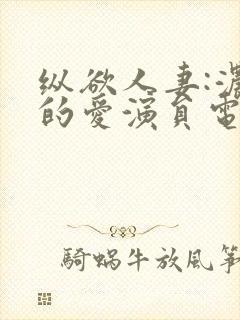 纵欲人妻:濃
的愛演員電
騎蝸牛放風箏